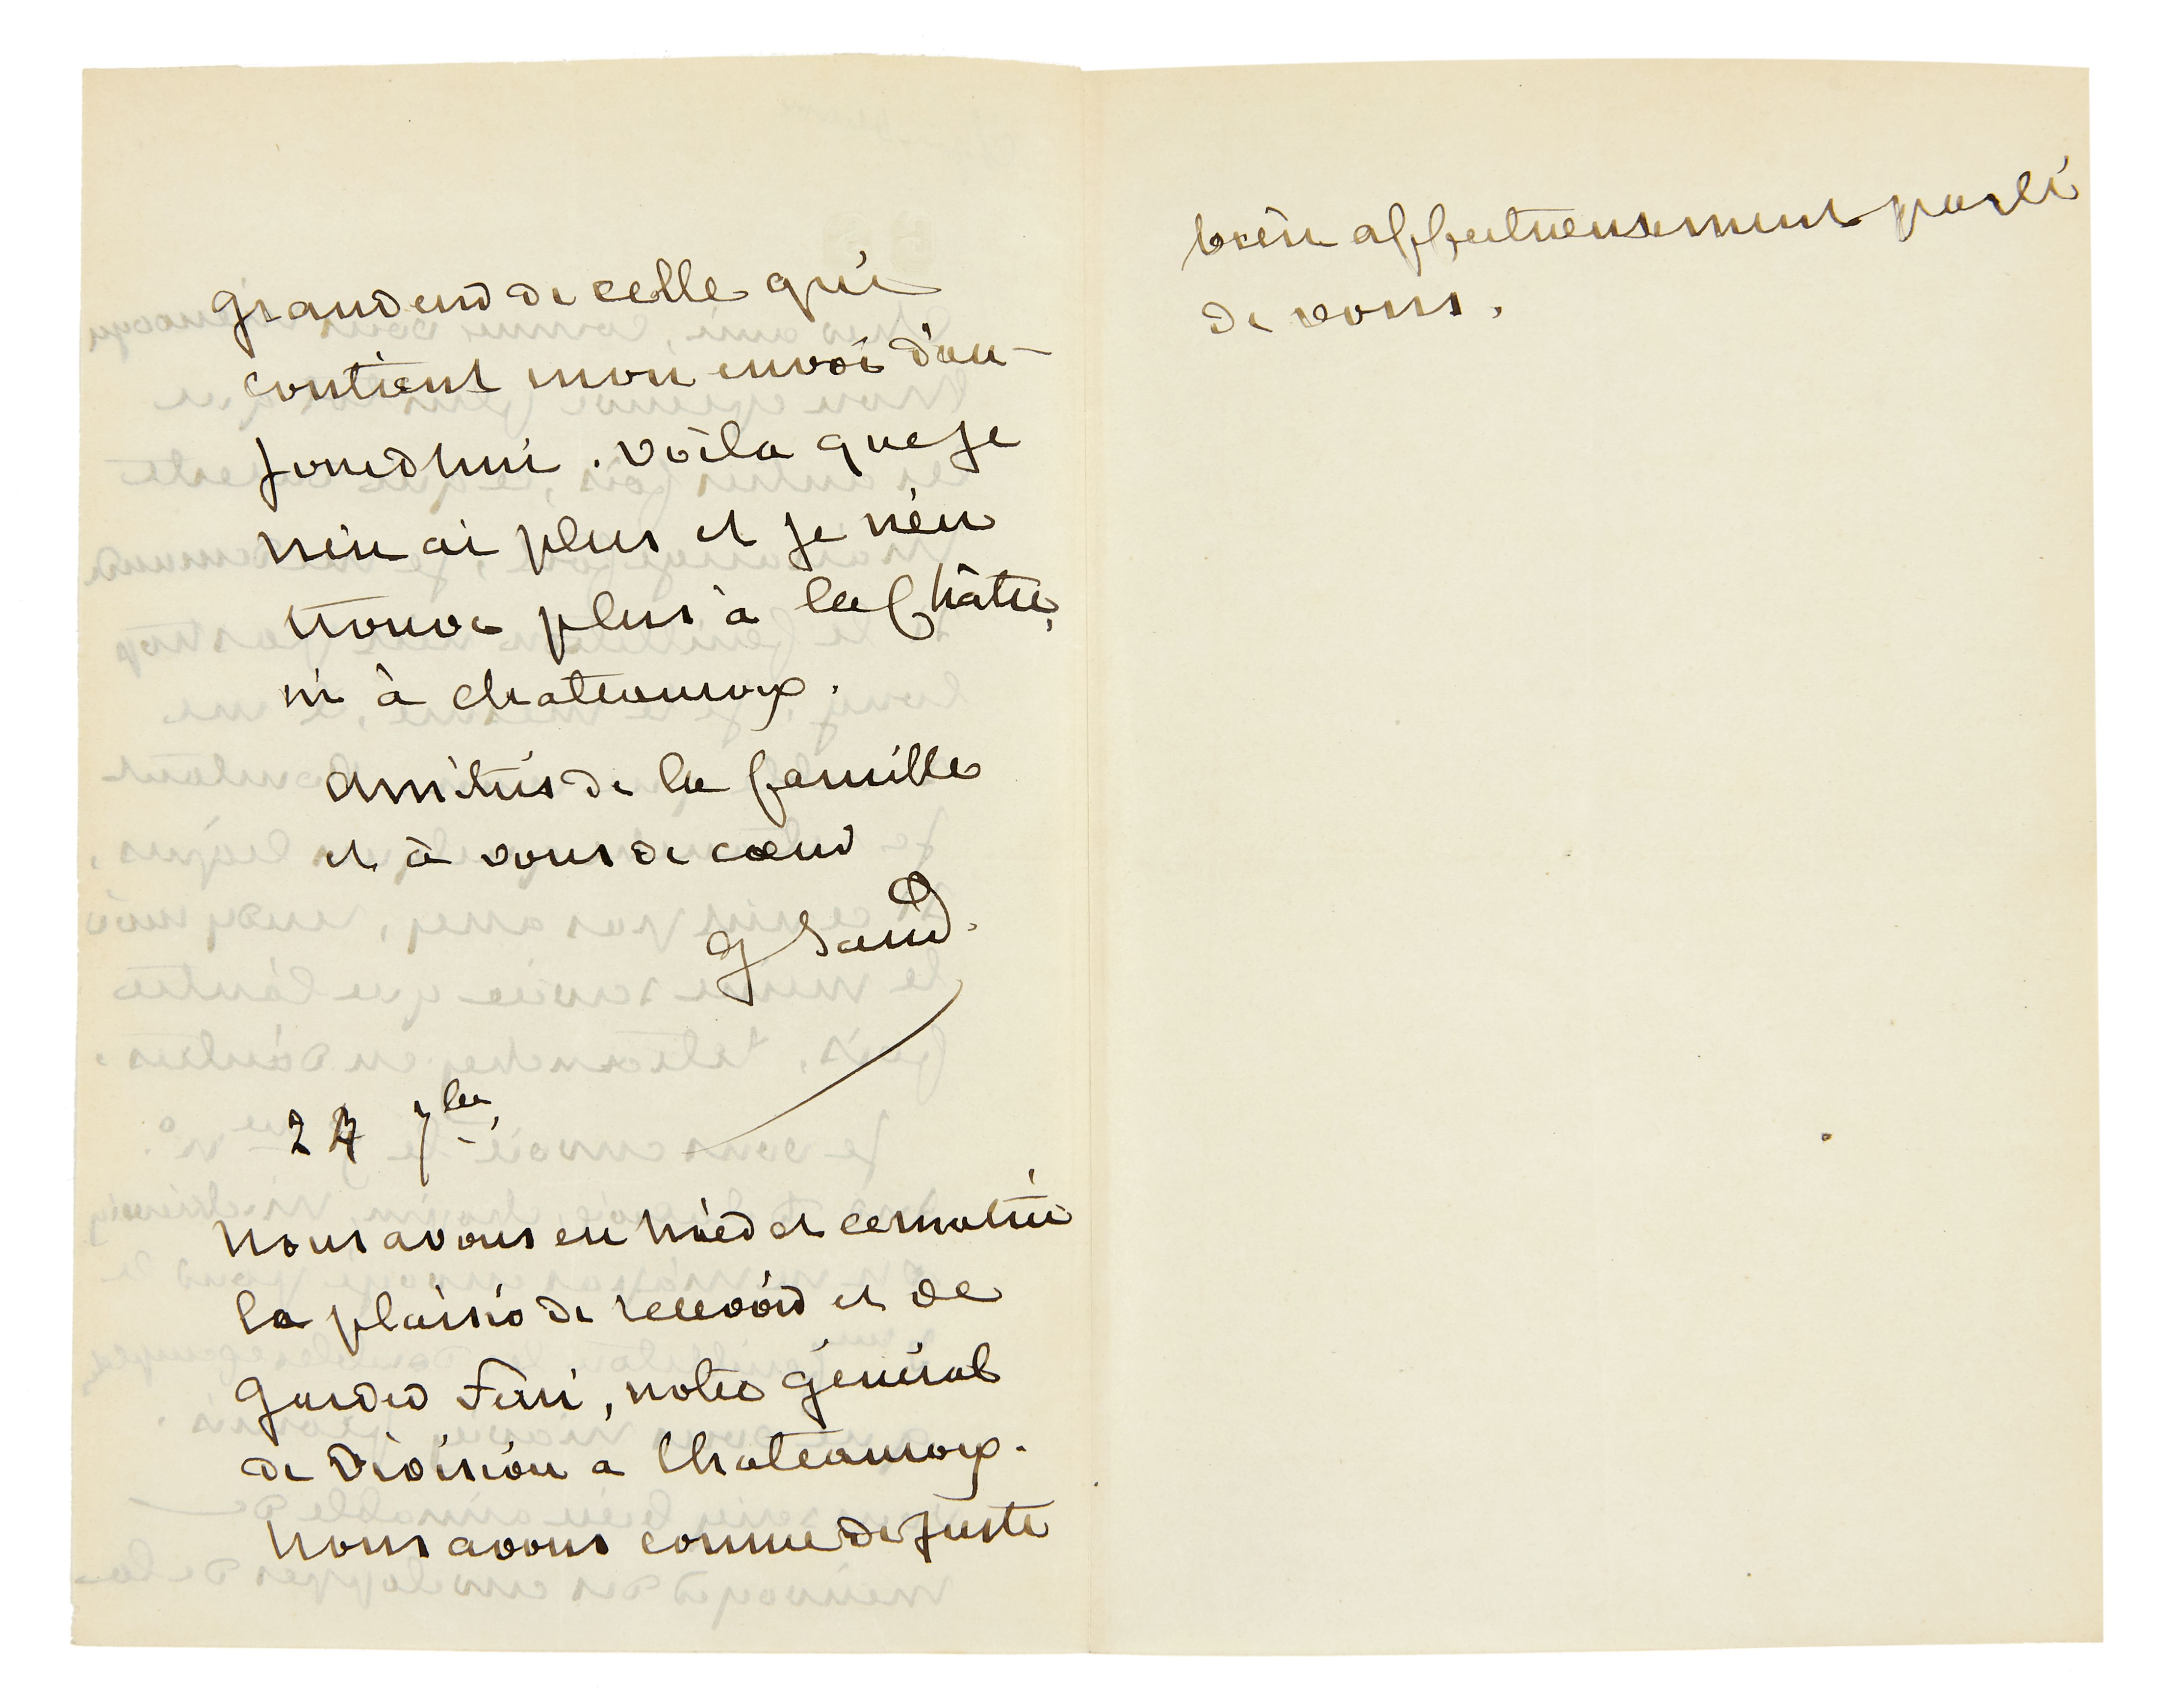 grandeur de celle qui
contient mon envoi d'au-
jourd'hui. voila que je
n'en ai plus et je n'en
trouve plus à la Châtre,
ni à Chateauroux.
amitiés de la famille
et à vous de cœur
G Sand.
24 7bre
Nous avons eu hier et ce matin
le plaisir de recevoir et de
garder Ferri, notre général
de division a Chateauroux.
Nous avons comme de juste
bien affectueusement parlé
de vous.